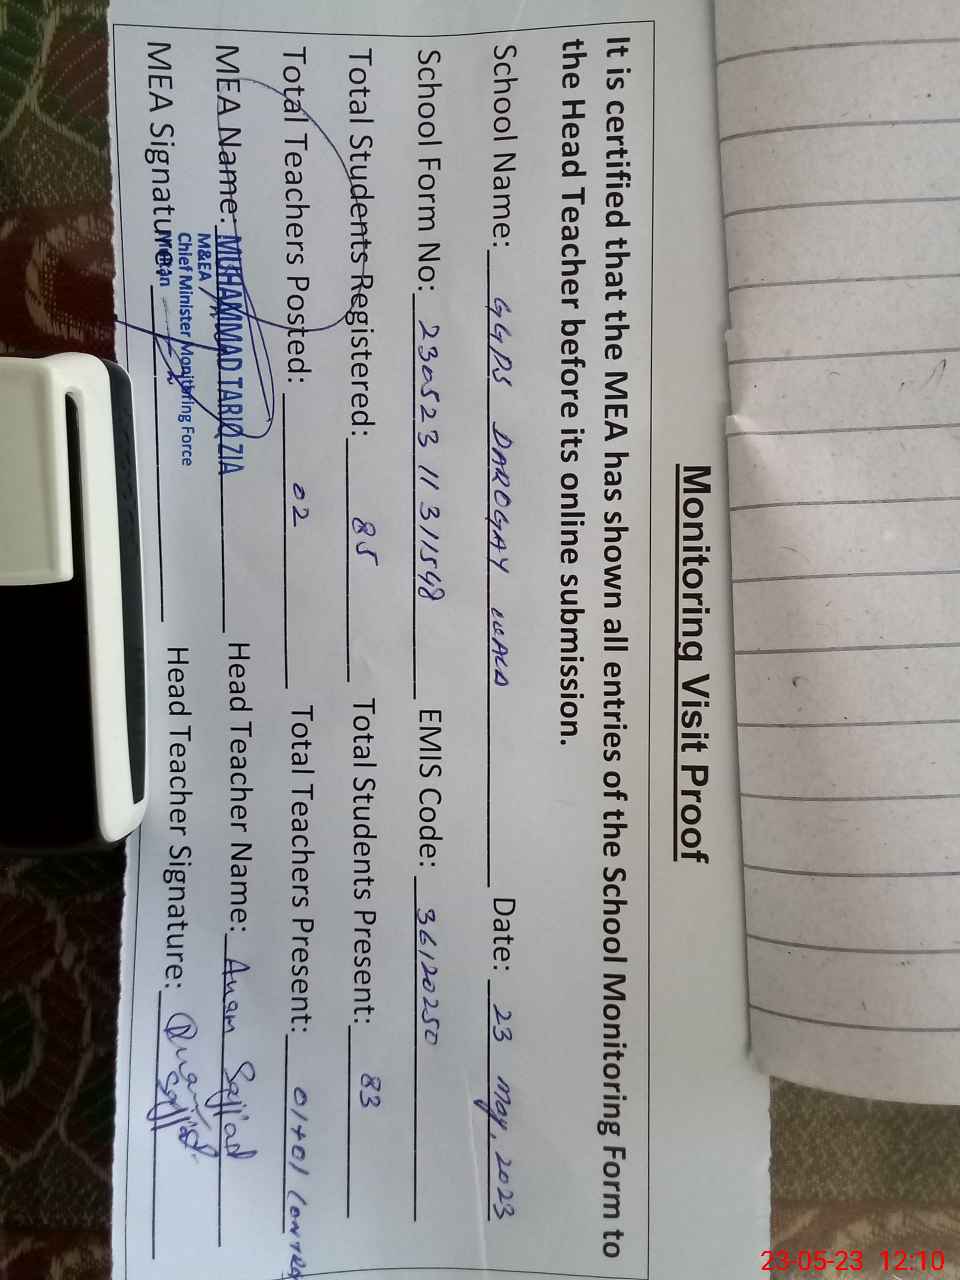 Monitoring Visit Proof
It is certified that the MEA has shown all entries of the School Monitoring Form to
the Head Teacher before its online submission.
School Name: GGPS DAROGAY WALA Date: 23 May, 2023
School Form No: 230523 11 311548 EMIS Code: 36120250
Total Students Registered: 85 Total Students Present: 83
Total Teachers Posted: 02 Total Teachers Present: 01+01
MEA Name: MUHAMMAD TARIQ ZIA Head Teacher Name: Anam Sajjad
M&EA
Chief Minister Monitoring Force
MEA Signature: Head Teacher Signature: Anam Sajjad
23-05-23 12:10